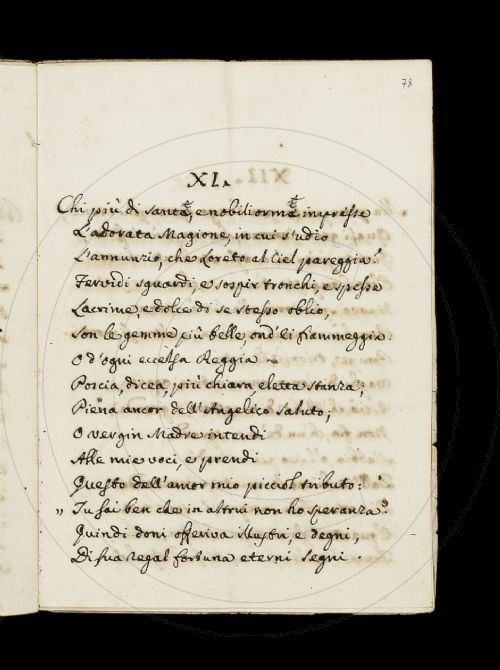 78
XI.
Chi più di sante, e nobili orme impresse
L'adorata Magione, in cui s'udio
L'annunzio, che Loreto al Ciel pareggia?
Fervidi sguardi, e sospir tronchi, e spesse
Lacrime, e dolce di se stesso oblio,
Son le gemme più belle, ond'ei fiammeggia.
O d'ogni eccelsa Reggia
Poscia, dicea, più chiara, eletta stanza,
Piena ancor dell'Angelico saluto;
O vergin Madre intendi
Alle mie voci, e prendi
Questo dell'amor mio picciol tributo:
„ Tu sai ben che in altrui non ho speranza.
Quindi doni offeriva illustri, e degni,
Di sua regal fortuna eterni segni.